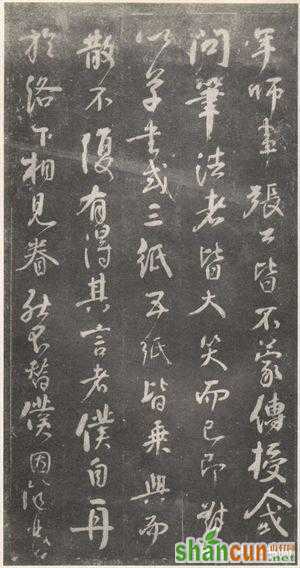 年師事張公皆不蒙傳授人或
問筆法者皆大笑而已即對
以草書或三紙五紙皆乘興而
散不復有得其言者僕自再
於洛下相見眷然不替僕因
shancun
山村网
.net